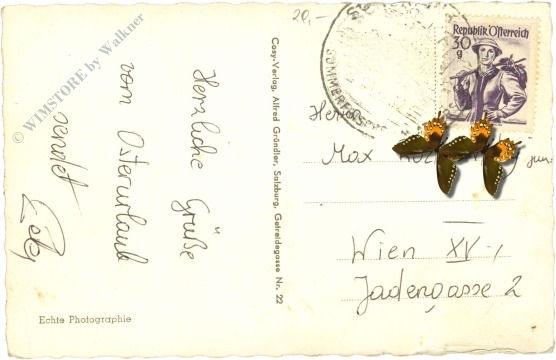 © WIMSTORE by Walkner
Herzliche Grüße
vom Osterurlaub
sendet
Cosy-Verlag, Alfred Gründler, Salzburg, Getreidegasse Nr. 22
Echte Photographie
20,-
SOMMERFRISCHE
Republik Österreich
30
g
Herrn
Max jun.
Wien XV.,
Jadengasse 2